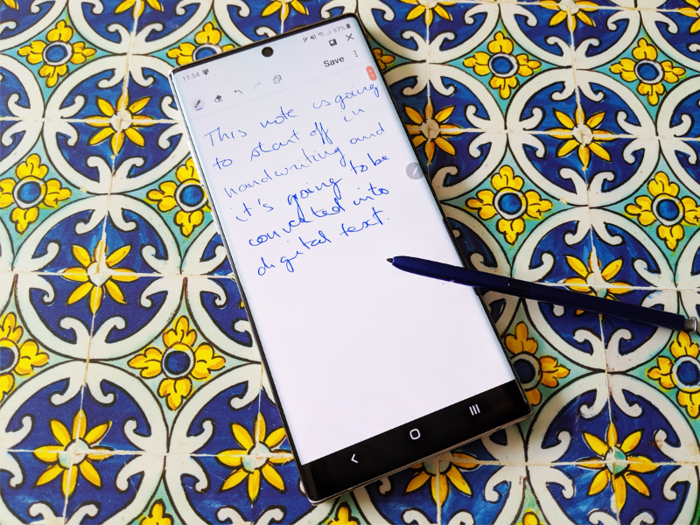 11:54
97%
Save
This note is going
to start off in
handwriting and
it's going to be
converted into
digital text.